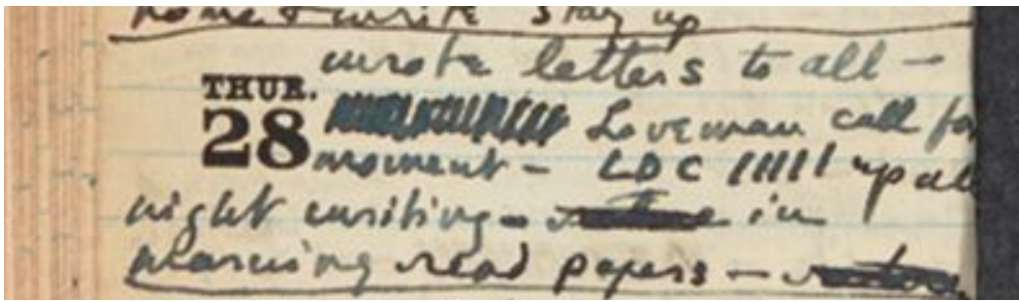 home & write stay up
wrote letters to all —
THUR.
28 Loveman call for
moment — LDC ///// up all
night writing — in
morning read papers —